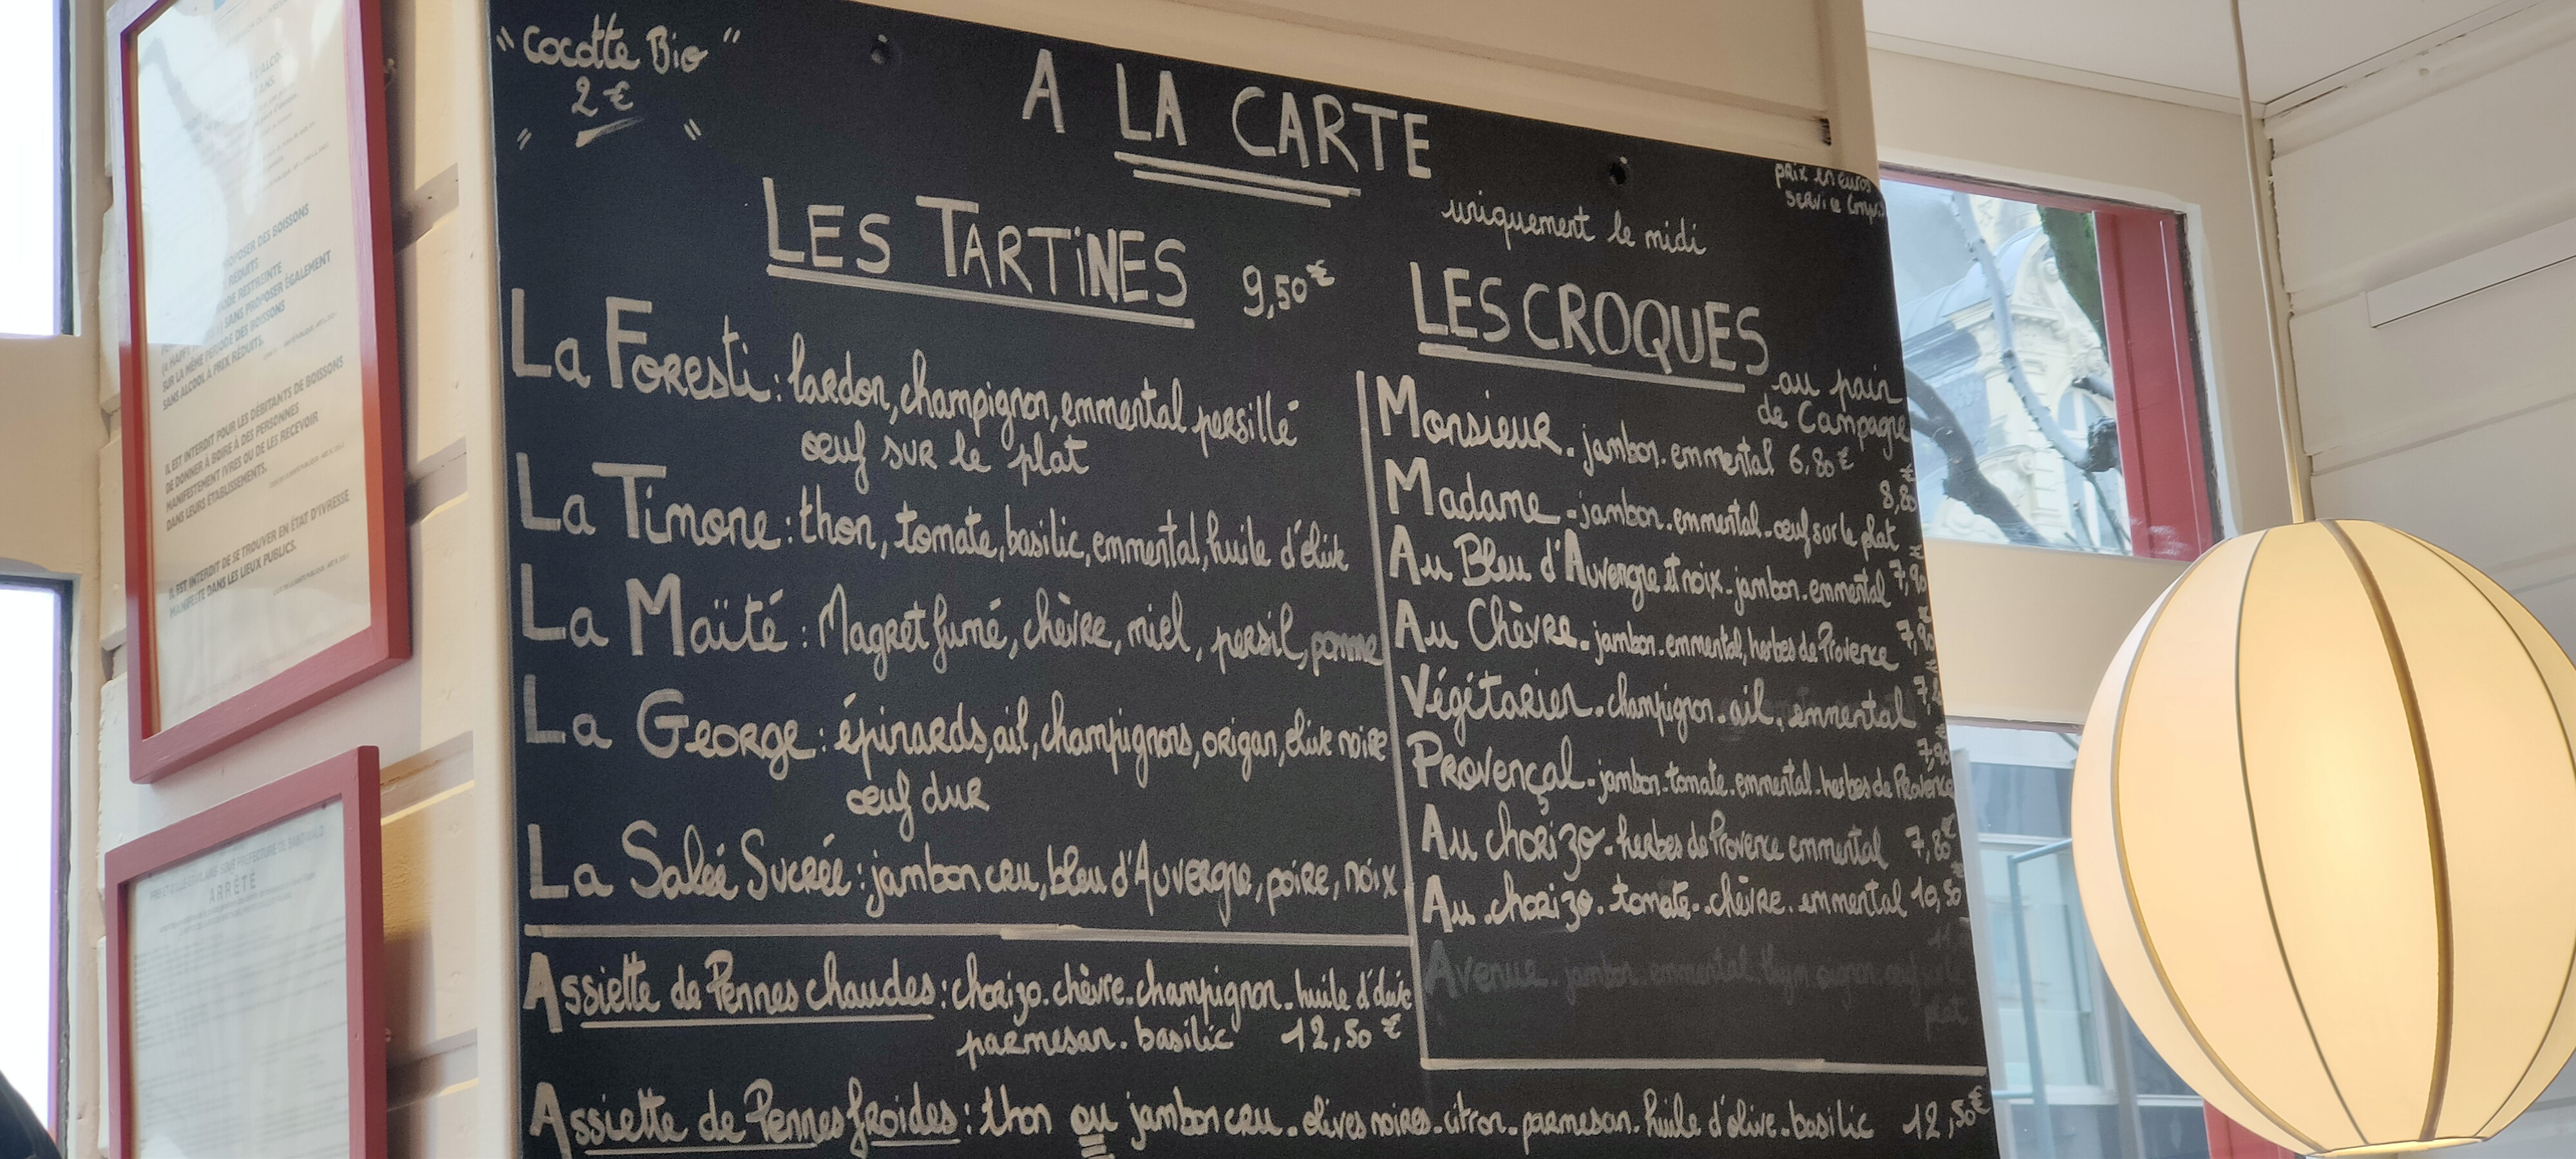 "Cocotte Bio"
2€
A LA CARTE
uniquement le midi
prix en euros
service
LES TARTINES 9,50€
La Foresti : lardon, champignon, emmental persillé
œuf sur le plat
La Timone : thon, tomate, basilic, emmental, huile d'olive
La Maïté : Magret fumé, chèvre, miel, persil, pomme
La George : épinards, ail, champignons, origan, olive noire
œuf dur
La Salée Sucrée : jambon cru, bleu d'Auvergne, poire, noix
Assiette de Pennes chaudes : chorizo. chèvre. champignon. huile d'olive
parmesan. basilic 12,50 €
LES CROQUES
au pain
de Campagne
Monsieur. jambon. emmental 6,80€
Madame - jambon. emmental. œuf sur le plat 8,80€
Au Bleu d'Auvergne et noix. jambon. emmental 7,90€
Au Chèvre. jambon. emmental, herbes de Provence 7,90€
Végétarien. champignon. ail. emmental
Provençal. jambon. tomate. emmental. herbes de Provence 7,90€
Au chorizo. herbes de Provence emmental 7,80€
Au chorizo. tomate. chèvre. emmental 10,50€
Avenue. jambon. emmental. thym. oignon. œuf sur le
plat
Assiette de Pennes froides : thon ou jambon cru. olives noires. citron. parmesan. huile d'olive. basilic 12,50€
PROPOSER DES BOISSONS
RÉDUITS
RESTREINTE
SANS PROPOSER ÉGALEMENT
SUR LA MÊME PÉRIODE DES BOISSONS
SANS ALCOOL À PRIX RÉDUITS.
IL EST INTERDIT POUR LES DÉBITANTS DE BOISSONS
DE DONNER À BOIRE À DES PERSONNES
MANIFESTEMENT IVRES OU DE LES RECEVOIR
DANS LEURS ÉTABLISSEMENTS.
IL EST INTERDIT DE SE TROUVER EN ÉTAT D'IVRESSE
MANIFESTE DANS LES LIEUX PUBLICS.
ARRÊTÉ